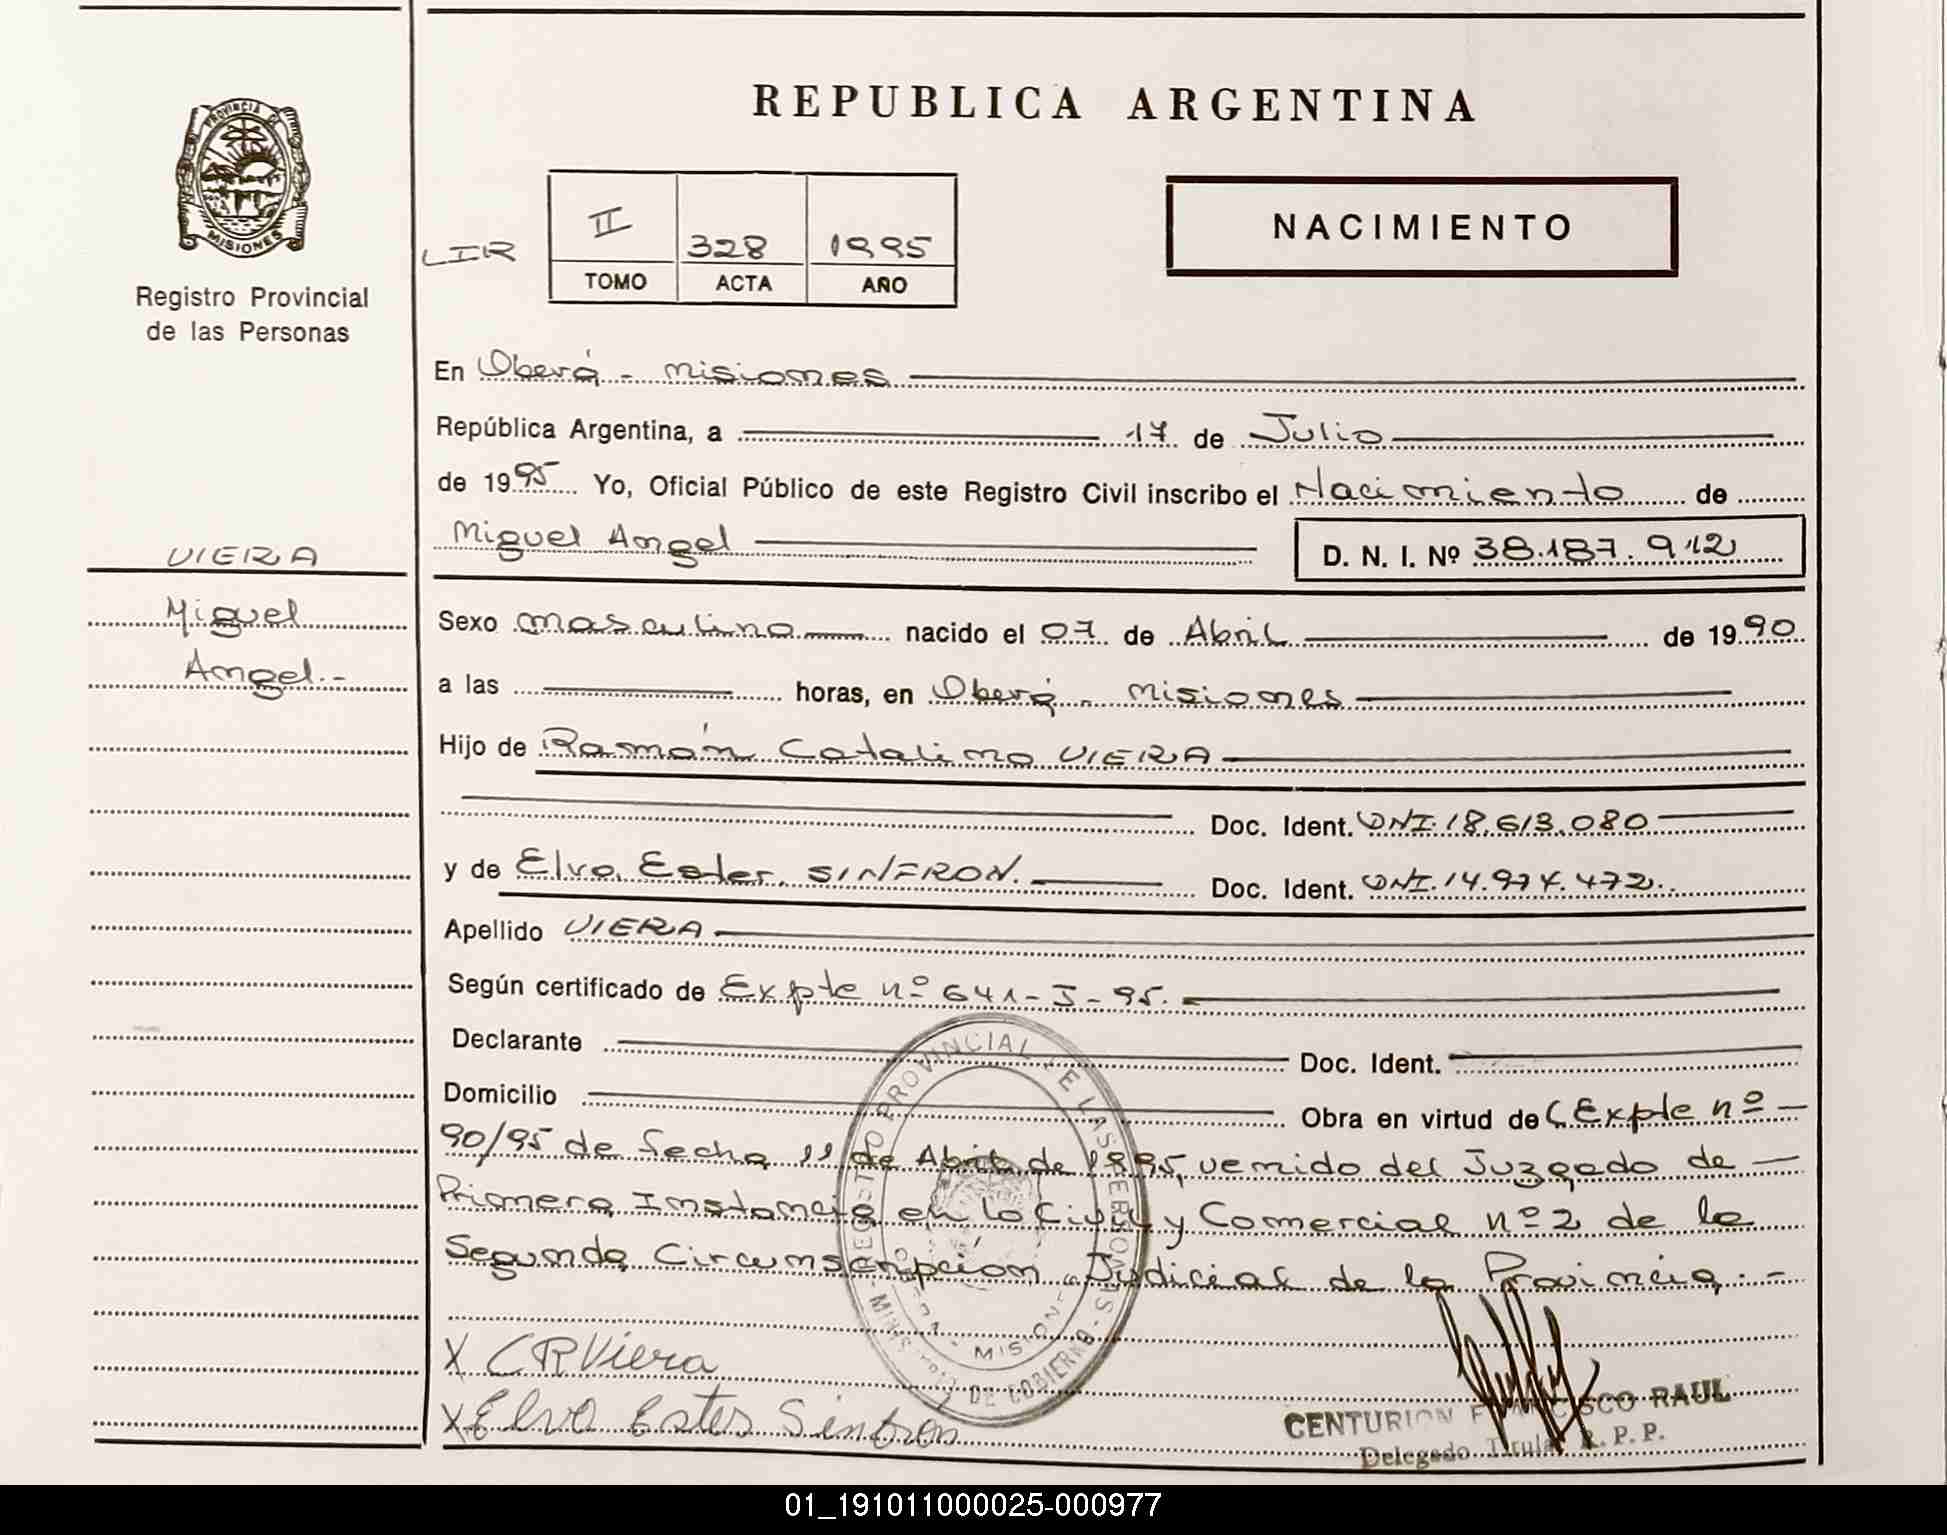 PROVINCIA DE
MISIONES
Registro Provincial
de las Personas
VIERA
Miguel
Angel.-
REPUBLICA ARGENTINA
LIR
II 328 1995
TOMO ACTA AÑO
NACIMIENTO
En Oberá - Misiones
República Argentina, a 17 de Julio
de 1995 Yo, Oficial Público de este Registro Civil inscribo el Nacimiento de
Miguel Angel D. N. I. Nº 38.187.912
Sexo masculino nacido el 07 de Abril de 1990
a las horas, en Oberá - Misiones
Hijo de Ramón Catalino VIERA
Doc. Ident. DNI.18.613.080
y de Elva Ester SINFRON. Doc. Ident. DNI.14.974.472.
Apellido VIERA
Según certificado de Expte nº 641-J-95.
Declarante Doc. Ident.
Domicilio Obra en virtud de Expte nº
90/95 de fecha 11 de Abril de 1995, venido del Juzgado de
Primera Instancia en lo Civil y Comercial nº 2 de la
Segunda Circunscripcion Judicial de la Provincia.-
REGISTRO PROVINCIAL DE LAS PERSONAS - MINISTERIO DE GOBIERNO -
OBERA - MISIONES
X CRViera
X Elva Ester Sinfron
CENTURION FRANCISCO RAUL
Delegado Titular R. P. P.
01_191011000025-000977